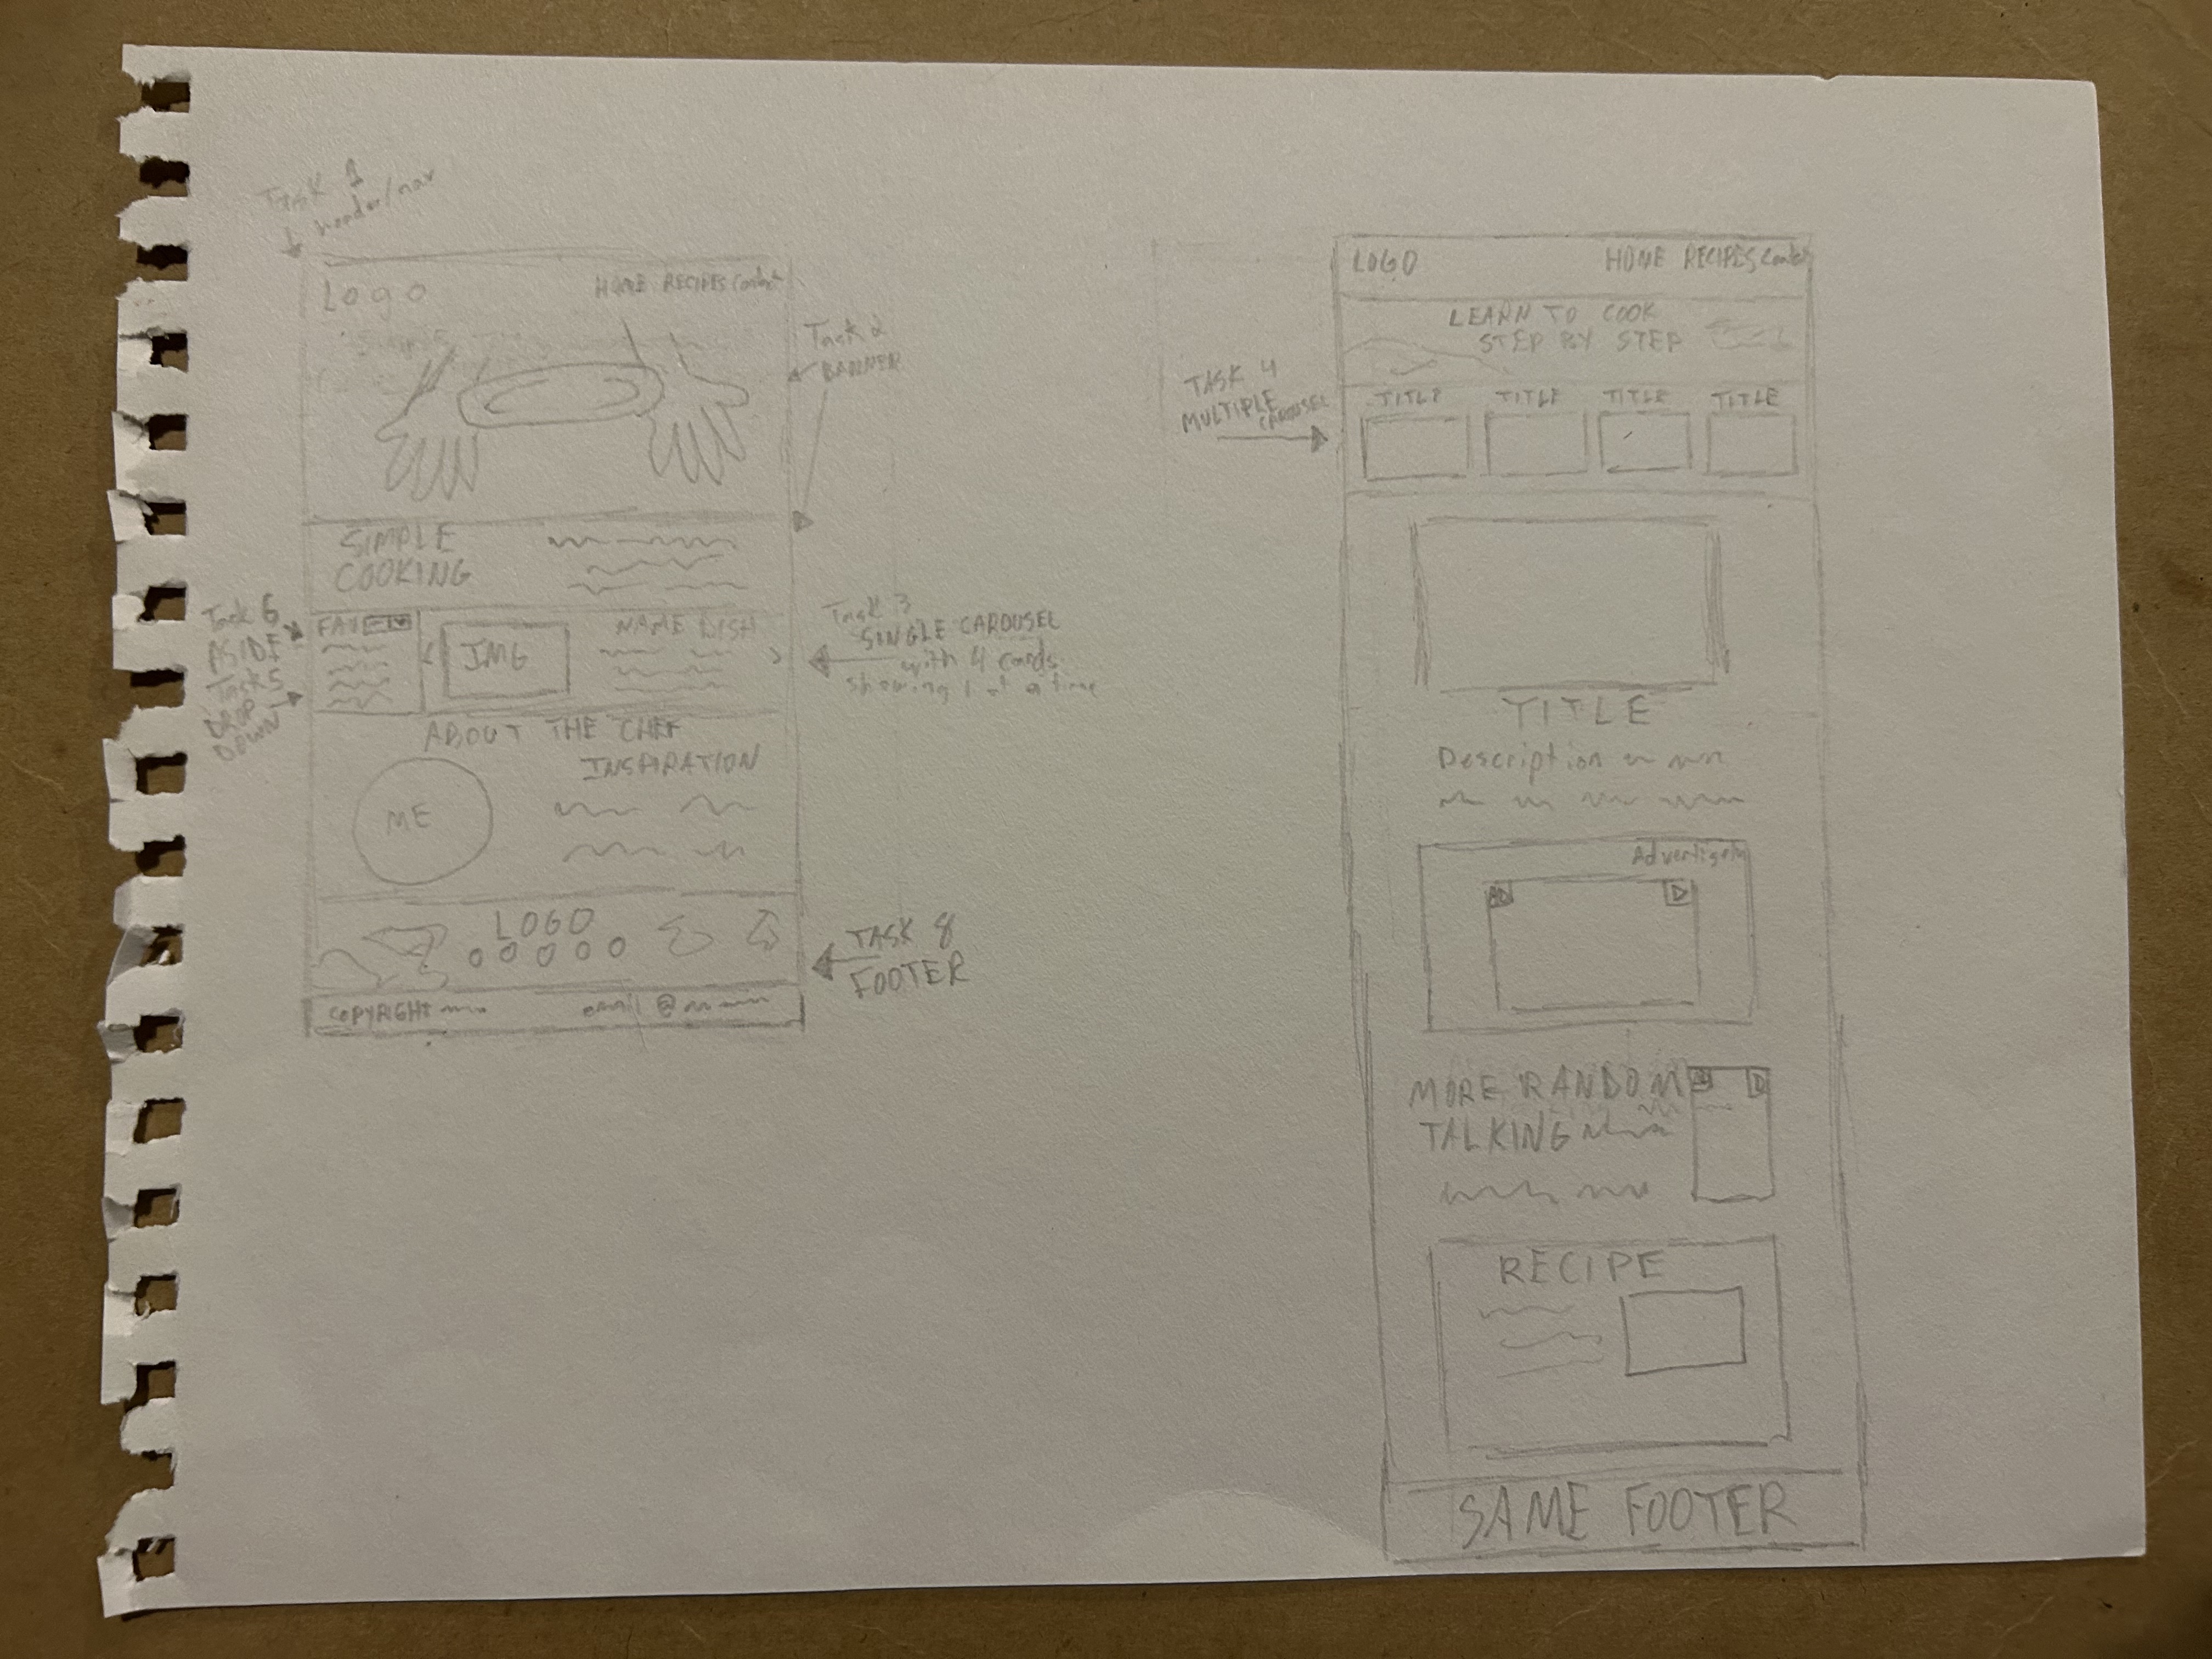 Task 1
header/nav
Logo
HOME RECIPES Contact
Task 2
BANNER
SIMPLE
COOKING
Task 6
ASIDE
Task 5
DROP
DOWN
FAV
IMG
NAME DISH
Task 3
SINGLE CAROUSEL
with 4 cards
showing 1 at a time
ABOUT THE CHEF
INSPIRATION
ME
LOGO
TASK 8
FOOTER
COPYRIGHT
email @
LOGO
HOME RECIPES Contact
LEARN TO COOK
STEP BY STEP
TASK 4
MULTIPLE
CAROUSEL
TITLE TITLE TITLE TITLE
TITLE
Description
AD
MORE RANDOM
TALKING
AD
RECIPE
SAME FOOTER